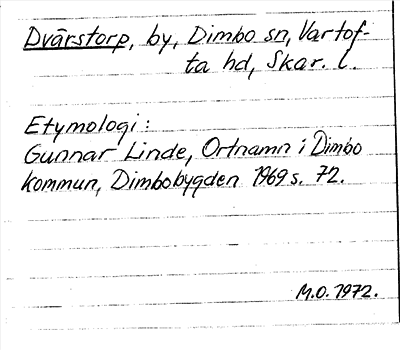 Dvärstorp, by, Dimbo sn, Vartof-
ta hd, Skar. l.
Etymologi:
Gunnar Linde, Ortnamn i Dimbo
kommun, Dimbobygden 1969 s. 72.
M.O. 1972.